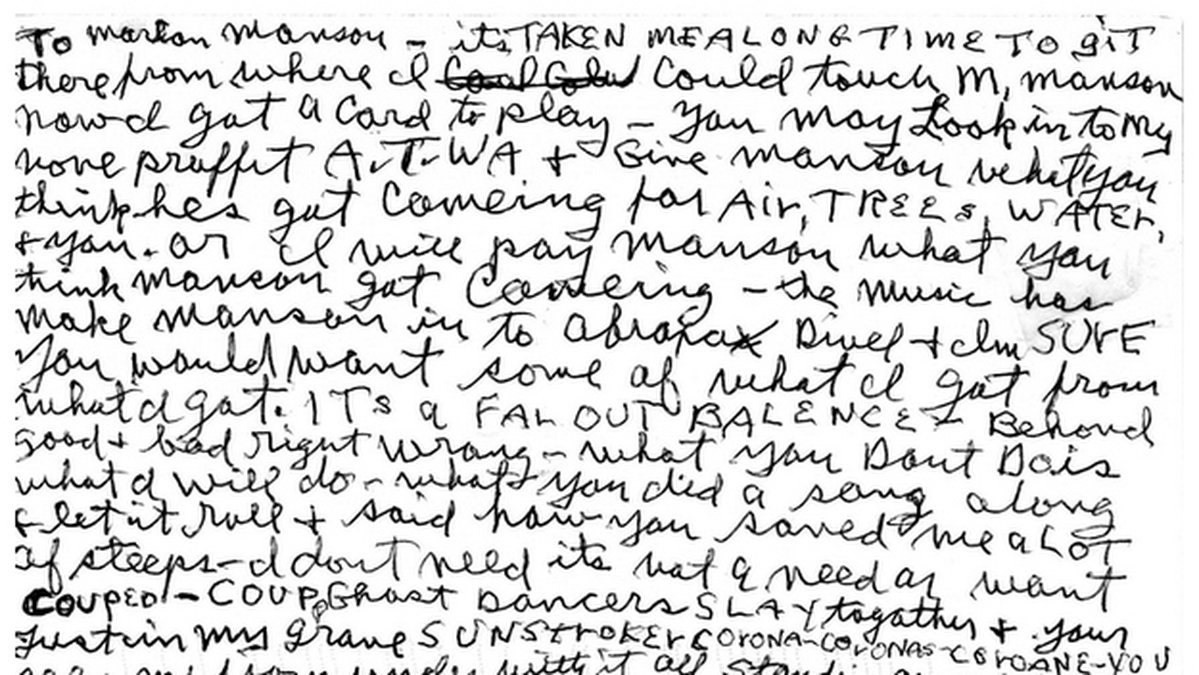 To Marlon Manson – its TAKEN ME A LONG TIME TO giT
there from where I could touch M, manson
now I got a Card to play – you may Look in to My
none proffit A.T.W.A + Give manson what you
think hes got Comeing for Air, TREES, WATEr,
+ you. or I will pay Manson what you
think manson got Comeing – the Music has
make Manson in to Abraxax Divel + Im SURE
you would want some of what I got from
what I got. ITs a FAr OUT BALENCE – Behond
good + bad right wrong – what you Dont Do is
what I will do – what you did a song along
+ let it roll + said how you saved me a LOT
of steeps – I dont need its not a need or want
COUPEd – COUP, Ghost Dancers SLAY together + your
Just in My grave SUNStroKEr CorONA-COrONAS-COrOANE-YOU
with it all